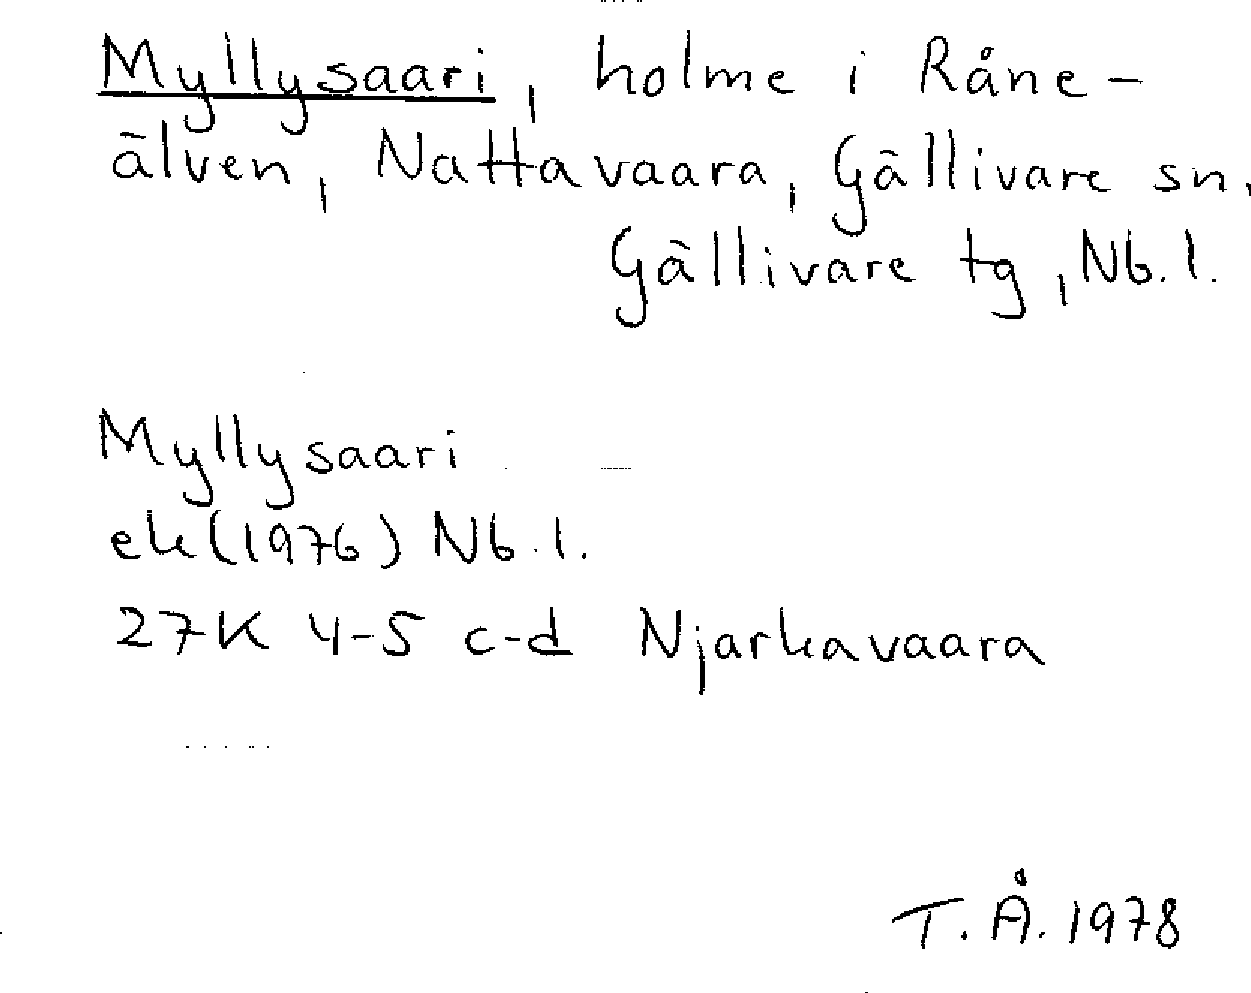 Myllysaari, holme i Råne-
älven, Nattavaara, Gällivare sn,
Gällivare tg, Nb.l.
Myllysaari
ek (1976) Nb.l.
27K 4-5 c-d Njarkavaara
T.Å. 1978